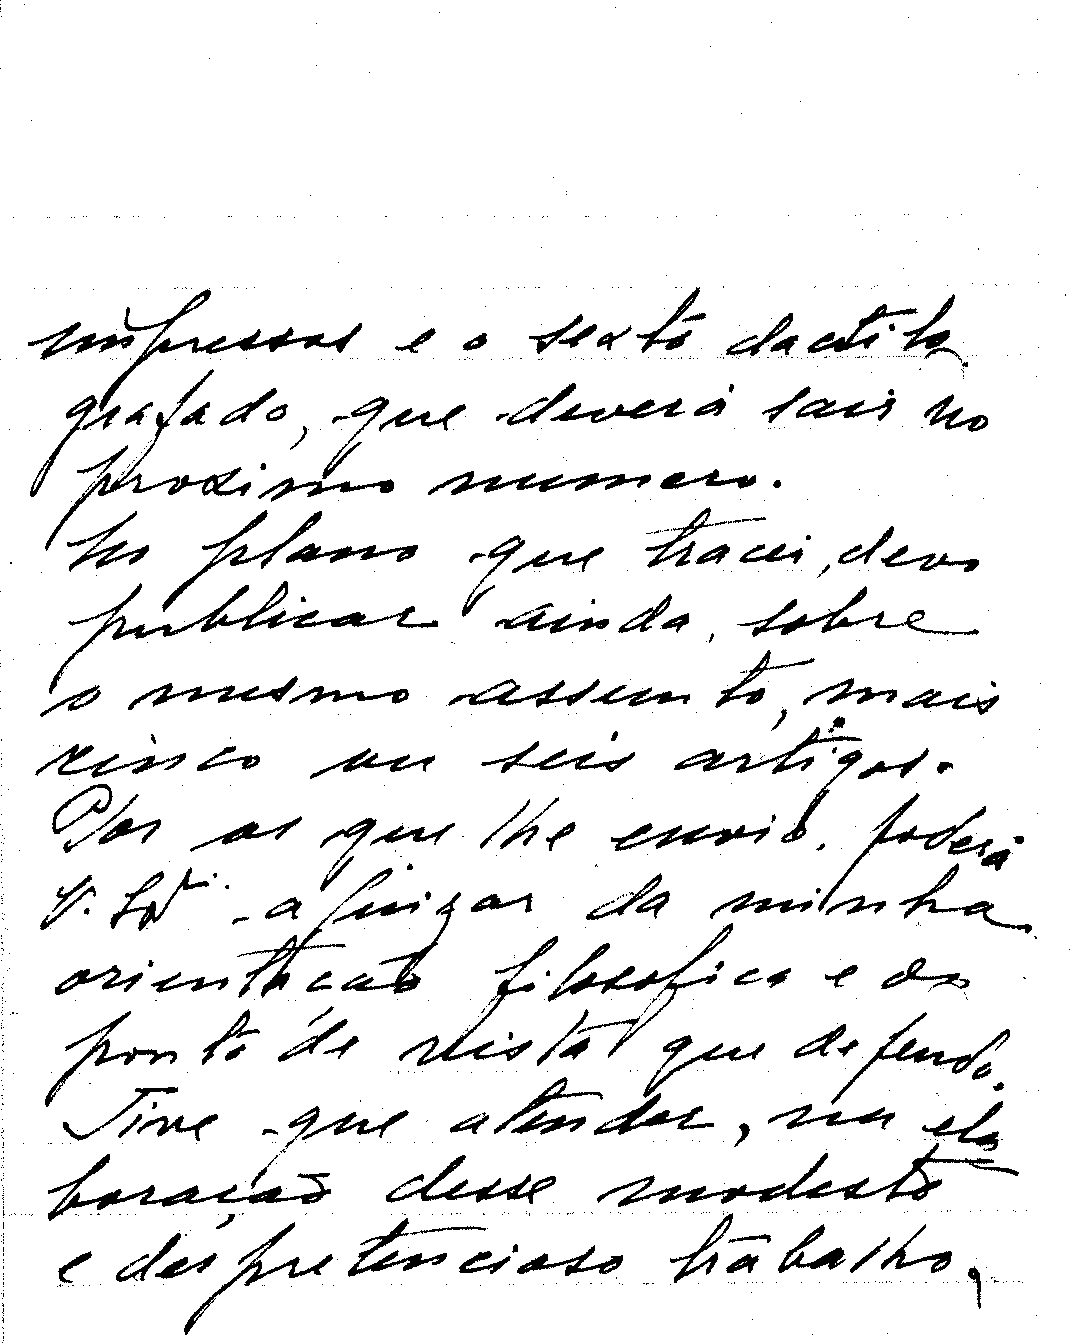 impressos e o sexto dactilo
grafado, que deverá sair no
proximo numero.
No plano que tracei, devo
publicar ainda, sobre
o mesmo assunto, mais
cinco ou seis artigos.
Por os que lhe envio, poderá
V. Sª. ajuizar da minha
orientação filosofica e do
ponto de vista que defendo.
Tive que atender, na ela
boração desse modesto
e despretencioso trabalho,